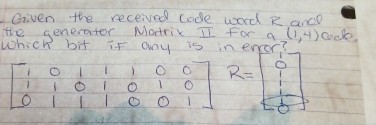 Given the received code word R and
the generator Matrix II for a (1,4) code,
which bit if any is in error?
1 0 1 1 1 0 0
1 1 0 1 0 1 0
0 1 1 1 0 0 1
R=
0
1
1
0